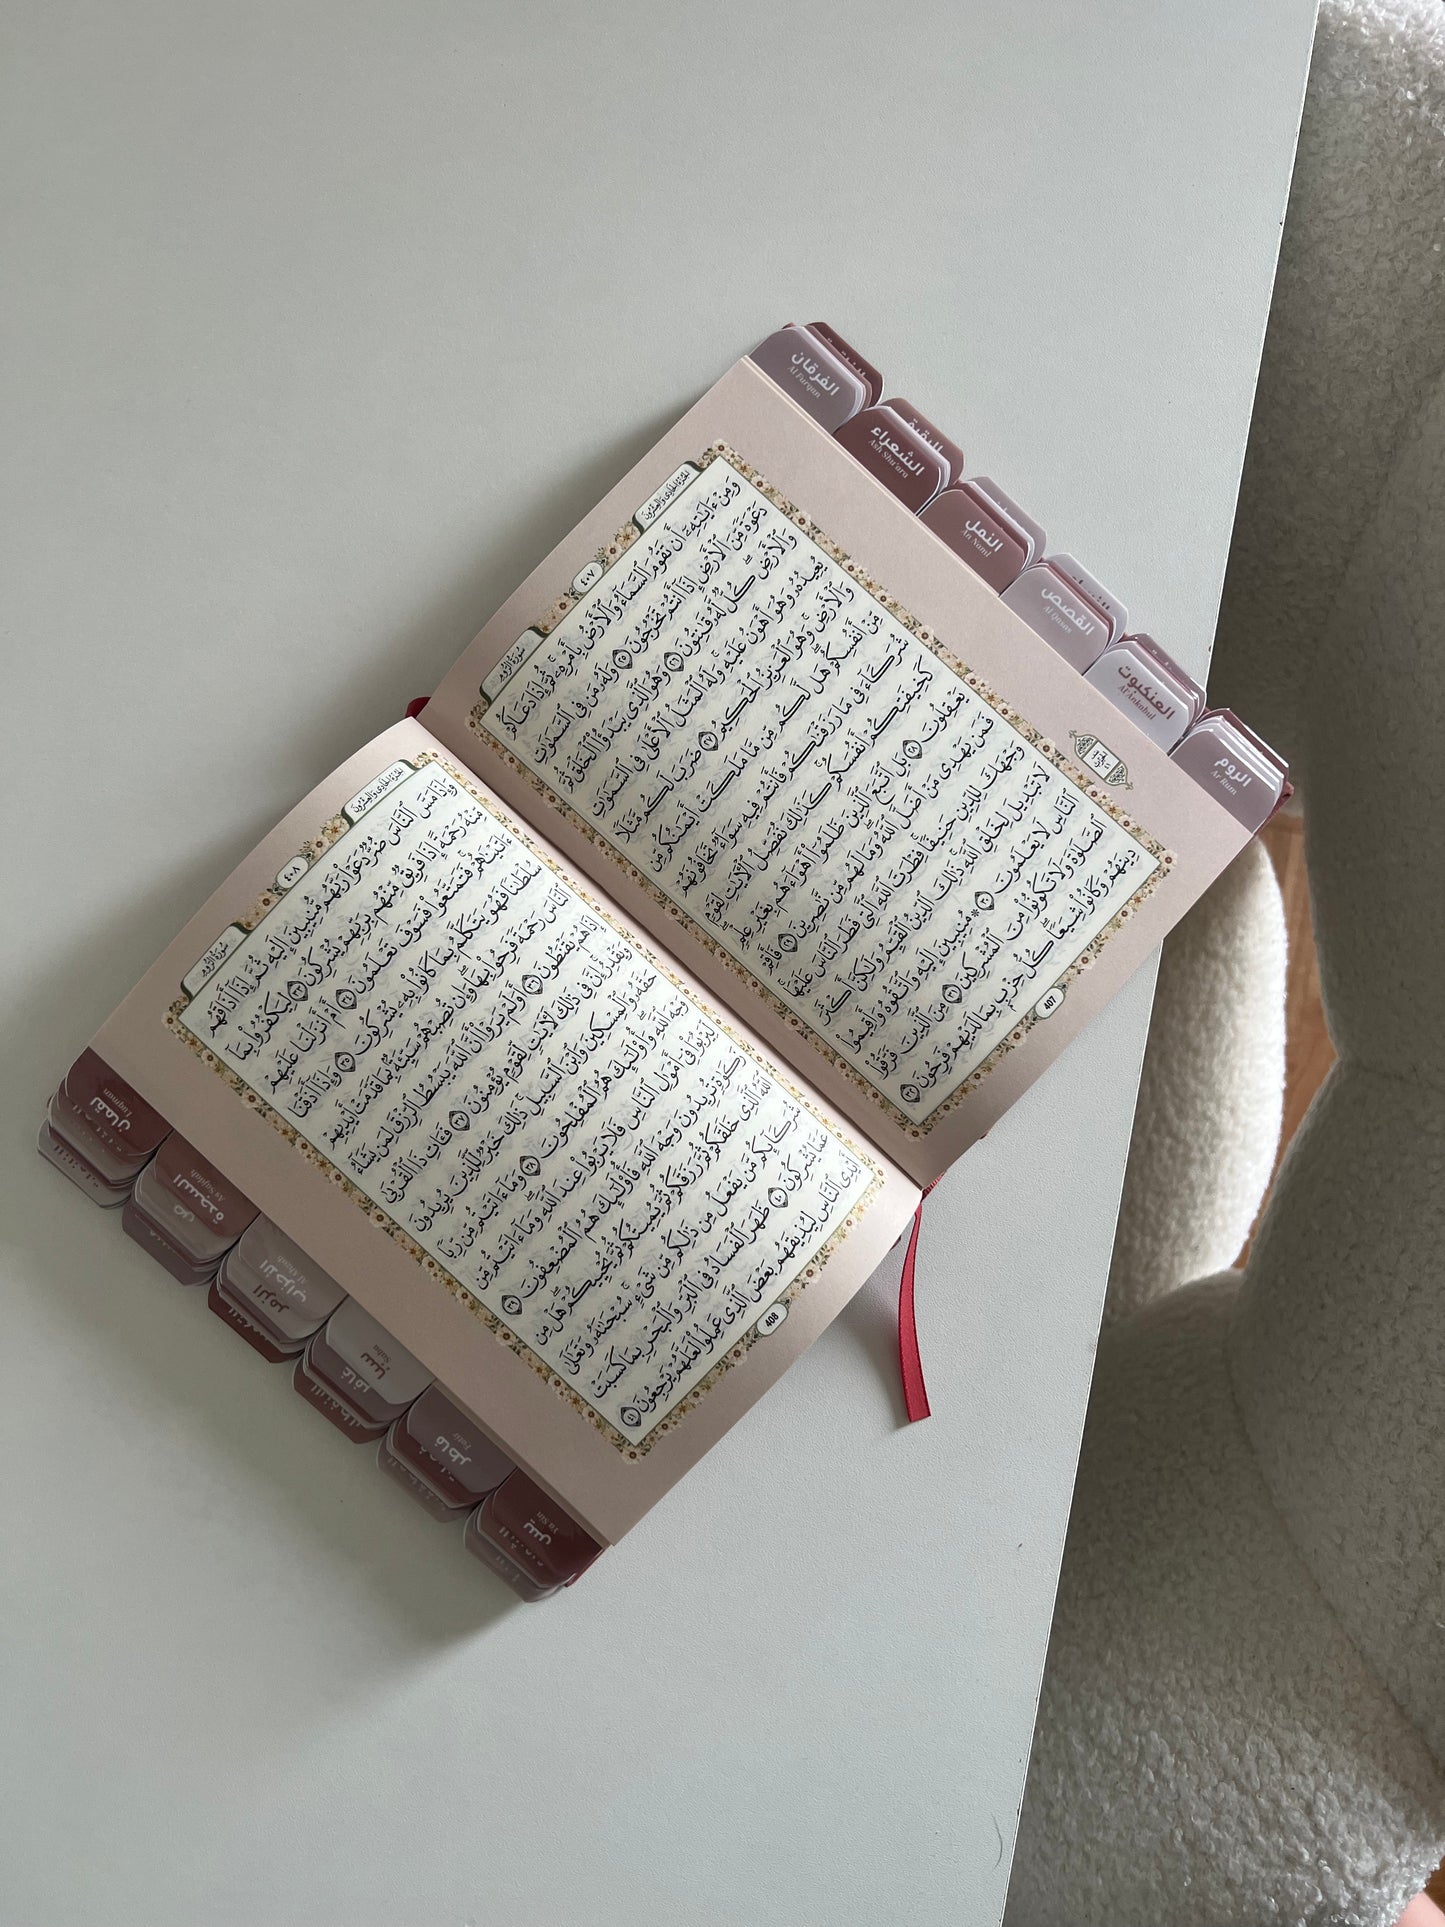 الجزء الحادي والعشرون
٤٠٧
سورة الروم
وَمِنْ ءَايَٰتِهِۦٓ أَن تَقُومَ ٱلسَّمَآءُ وَٱلْأَرْضُ بِأَمْرِهِۦ ۚ ثُمَّ إِذَا دَعَاكُمْ
دَعْوَةً مِّنَ ٱلْأَرْضِ إِذَآ أَنتُمْ تَخْرُجُونَ ٢٥ وَلَهُۥ مَن فِى ٱلسَّمَٰوَٰتِ
وَٱلْأَرْضِ ۖ كُلٌّ لَّهُۥ قَٰنِتُونَ ٢٦ وَهُوَ ٱلَّذِى يَبْدَؤُا۟ ٱلْخَلْقَ ثُمَّ
يُعِيدُهُۥ وَهُوَ أَهْوَنُ عَلَيْهِ ۚ وَلَهُ ٱلْمَثَلُ ٱلْأَعْلَىٰ فِى ٱلسَّمَٰوَٰتِ
وَٱلْأَرْضِ ۚ وَهُوَ ٱلْعَزِيزُ ٱلْحَكِيمُ ٢٧ ضَرَبَ لَكُم مَّثَلًا
مِّنْ أَنفُسِكُمْ ۖ هَل لَّكُم مِّن مَّا مَلَكَتْ أَيْمَٰنُكُم مِّن
شُرَكَآءَ فِى مَا رَزَقْنَٰكُمْ فَأَنتُمْ فِيهِ سَوَآءٌ تَخَافُونَهُمْ
كَخِيفَتِكُمْ أَنفُسَكُمْ ۚ كَذَٰلِكَ نُفَصِّلُ ٱلْءَايَٰتِ لِقَوْمٍ
يَعْقِلُونَ ٢٨ بَلِ ٱتَّبَعَ ٱلَّذِينَ ظَلَمُوٓا۟ أَهْوَآءَهُم بِغَيْرِ عِلْمٍ ۖ
فَمَن يَهْدِى مَنْ أَضَلَّ ٱللَّهُ ۖ وَمَا لَهُم مِّن نَّٰصِرِينَ ٢٩ فَأَقِمْ
وَجْهَكَ لِلدِّينِ حَنِيفًا ۚ فِطْرَتَ ٱللَّهِ ٱلَّتِى فَطَرَ ٱلنَّاسَ عَلَيْهَا ۚ
لَا تَبْدِيلَ لِخَلْقِ ٱللَّهِ ۚ ذَٰلِكَ ٱلدِّينُ ٱلْقَيِّمُ وَلَٰكِنَّ أَكْثَرَ
ٱلنَّاسِ لَا يَعْلَمُونَ ٣٠ * مُنِيبِينَ إِلَيْهِ وَٱتَّقُوهُ وَأَقِيمُوا۟
ٱلصَّلَوٰةَ وَلَا تَكُونُوا۟ مِنَ ٱلْمُشْرِكِينَ ٣١ مِنَ ٱلَّذِينَ فَرَّقُوا۟
دِينَهُمْ وَكَانُوا۟ شِيَعًا ۖ كُلُّ حِزْبٍۭ بِمَا لَدَيْهِمْ فَرِحُونَ ٣٢
407
الجزء الحادي والعشرون
٤٠٨
سورة الروم
وَإِذَا مَسَّ ٱلنَّاسَ ضُرٌّ دَعَوْا۟ رَبَّهُم مُّنِيبِينَ إِلَيْهِ ثُمَّ إِذَآ أَذَاقَهُم
مِّنْهُ رَحْمَةً إِذَا فَرِيقٌ مِّنْهُم بِرَبِّهِمْ يُشْرِكُونَ ٣٣ لِيَكْفُرُوا۟ بِمَآ
ءَاتَيْنَٰهُمْ ۚ فَتَمَتَّعُوا۟ فَسَوْفَ تَعْلَمُونَ ٣٤ أَمْ أَنزَلْنَا عَلَيْهِمْ
سُلْطَٰنًا فَهُوَ يَتَكَلَّمُ بِمَا كَانُوا۟ بِهِۦ يُشْرِكُونَ ٣٥ وَإِذَآ أَذَقْنَا
ٱلنَّاسَ رَحْمَةً فَرِحُوا۟ بِهَا ۖ وَإِن تُصِبْهُمْ سَيِّئَةٌۢ بِمَا قَدَّمَتْ أَيْدِيهِمْ
إِذَا هُمْ يَقْنَطُونَ ٣٦ أَوَلَمْ يَرَوْا۟ أَنَّ ٱللَّهَ يَبْسُطُ ٱلرِّزْقَ لِمَن يَشَآءُ
وَيَقْدِرُ ۚ إِنَّ فِى ذَٰلِكَ لَءَايَٰتٍ لِّقَوْمٍ يُؤْمِنُونَ ٣٧ فَـَٔاتِ ذَا ٱلْقُرْبَىٰ
حَقَّهُۥ وَٱلْمِسْكِينَ وَٱبْنَ ٱلسَّبِيلِ ۚ ذَٰلِكَ خَيْرٌ لِّلَّذِينَ يُرِيدُونَ
وَجْهَ ٱللَّهِ ۖ وَأُو۟لَٰٓئِكَ هُمُ ٱلْمُفْلِحُونَ ٣٨ وَمَآ ءَاتَيْتُم مِّن رِّبًا
لِّيَرْبُوَا۟ فِىٓ أَمْوَٰلِ ٱلنَّاسِ فَلَا يَرْبُوا۟ عِندَ ٱللَّهِ ۖ وَمَآ ءَاتَيْتُم مِّن
زَكَوٰةٍ تُرِيدُونَ وَجْهَ ٱللَّهِ فَأُو۟لَٰٓئِكَ هُمُ ٱلْمُضْعِفُونَ ٣٩
ٱللَّهُ ٱلَّذِى خَلَقَكُمْ ثُمَّ رَزَقَكُمْ ثُمَّ يُمِيتُكُمْ ثُمَّ يُحْيِيكُمْ ۖ هَلْ مِن
شُرَكَآئِكُم مَّن يَفْعَلُ مِن ذَٰلِكُم مِّن شَىْءٍ ۚ سُبْحَٰنَهُۥ وَتَعَٰلَىٰ
عَمَّا يُشْرِكُونَ ٤٠ ظَهَرَ ٱلْفَسَادُ فِى ٱلْبَرِّ وَٱلْبَحْرِ بِمَا كَسَبَتْ
أَيْدِى ٱلنَّاسِ لِيُذِيقَهُم بَعْضَ ٱلَّذِى عَمِلُوا۟ لَعَلَّهُمْ يَرْجِعُونَ ٤١
408
الفرقان
Al Furqan
الشعراء
Ash Shu'ara
النمل
An Naml
القصص
Al Qasas
العنكبوت
Al Ankabut
الروم
Ar Rum
لقمان
Luqman
السجدة
As Sajdah
ص
الأحزاب
Al Ahzab
الزمر
سبإ
Saba
غافر
فاطر
Fatir
يس
Ya Sin